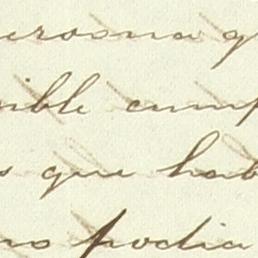 erosna q
sible cump
s que hab
no podia